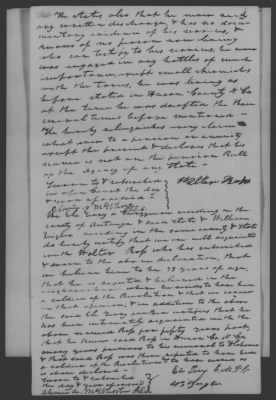 He states also that he never recd
any written discharge, & has no docu-
mentary evidence of his service, &
knows of no person now living
who can testify to his service, he never
was engaged in any battles of much
importance, except small skirmishes
with the tories, he was living as
before stated in County N. C.
at the time he was drafted the
several times before mentioned
He hereby relinquishes every claim
whatever to a pension or annuity
except the present & declares that his
name is not on the pension Roll
of the agency of any State
Sworn to & subscribed
the day & year aforesaid
Walter Ross
We Eli Gray a Clergyman residing in the
county of and state & William
residing in the same county & state
do hereby certify that we are well acquainted
with Walter Ross who has subscribed
& sworn to the above declaration, that
we believe him to be 79 years of age,
that he is reputed & believed in the
neighborhood where he resides to have been
a soldier of the Revolution & that we concur
in that opinion, & in addition to the above
the said Eli Gray further certifies that he
has been intimately acquainted with the
above named Ross for fifty years past,
that he knew said Ross in County N. C.
many years previous to his removal to
& that said Ross was then reputed to have been
a soldier of the Revolution & to have served as
is above declared
Sworn to & subscribed
the day & year aforesaid
Eli Gray
Wm